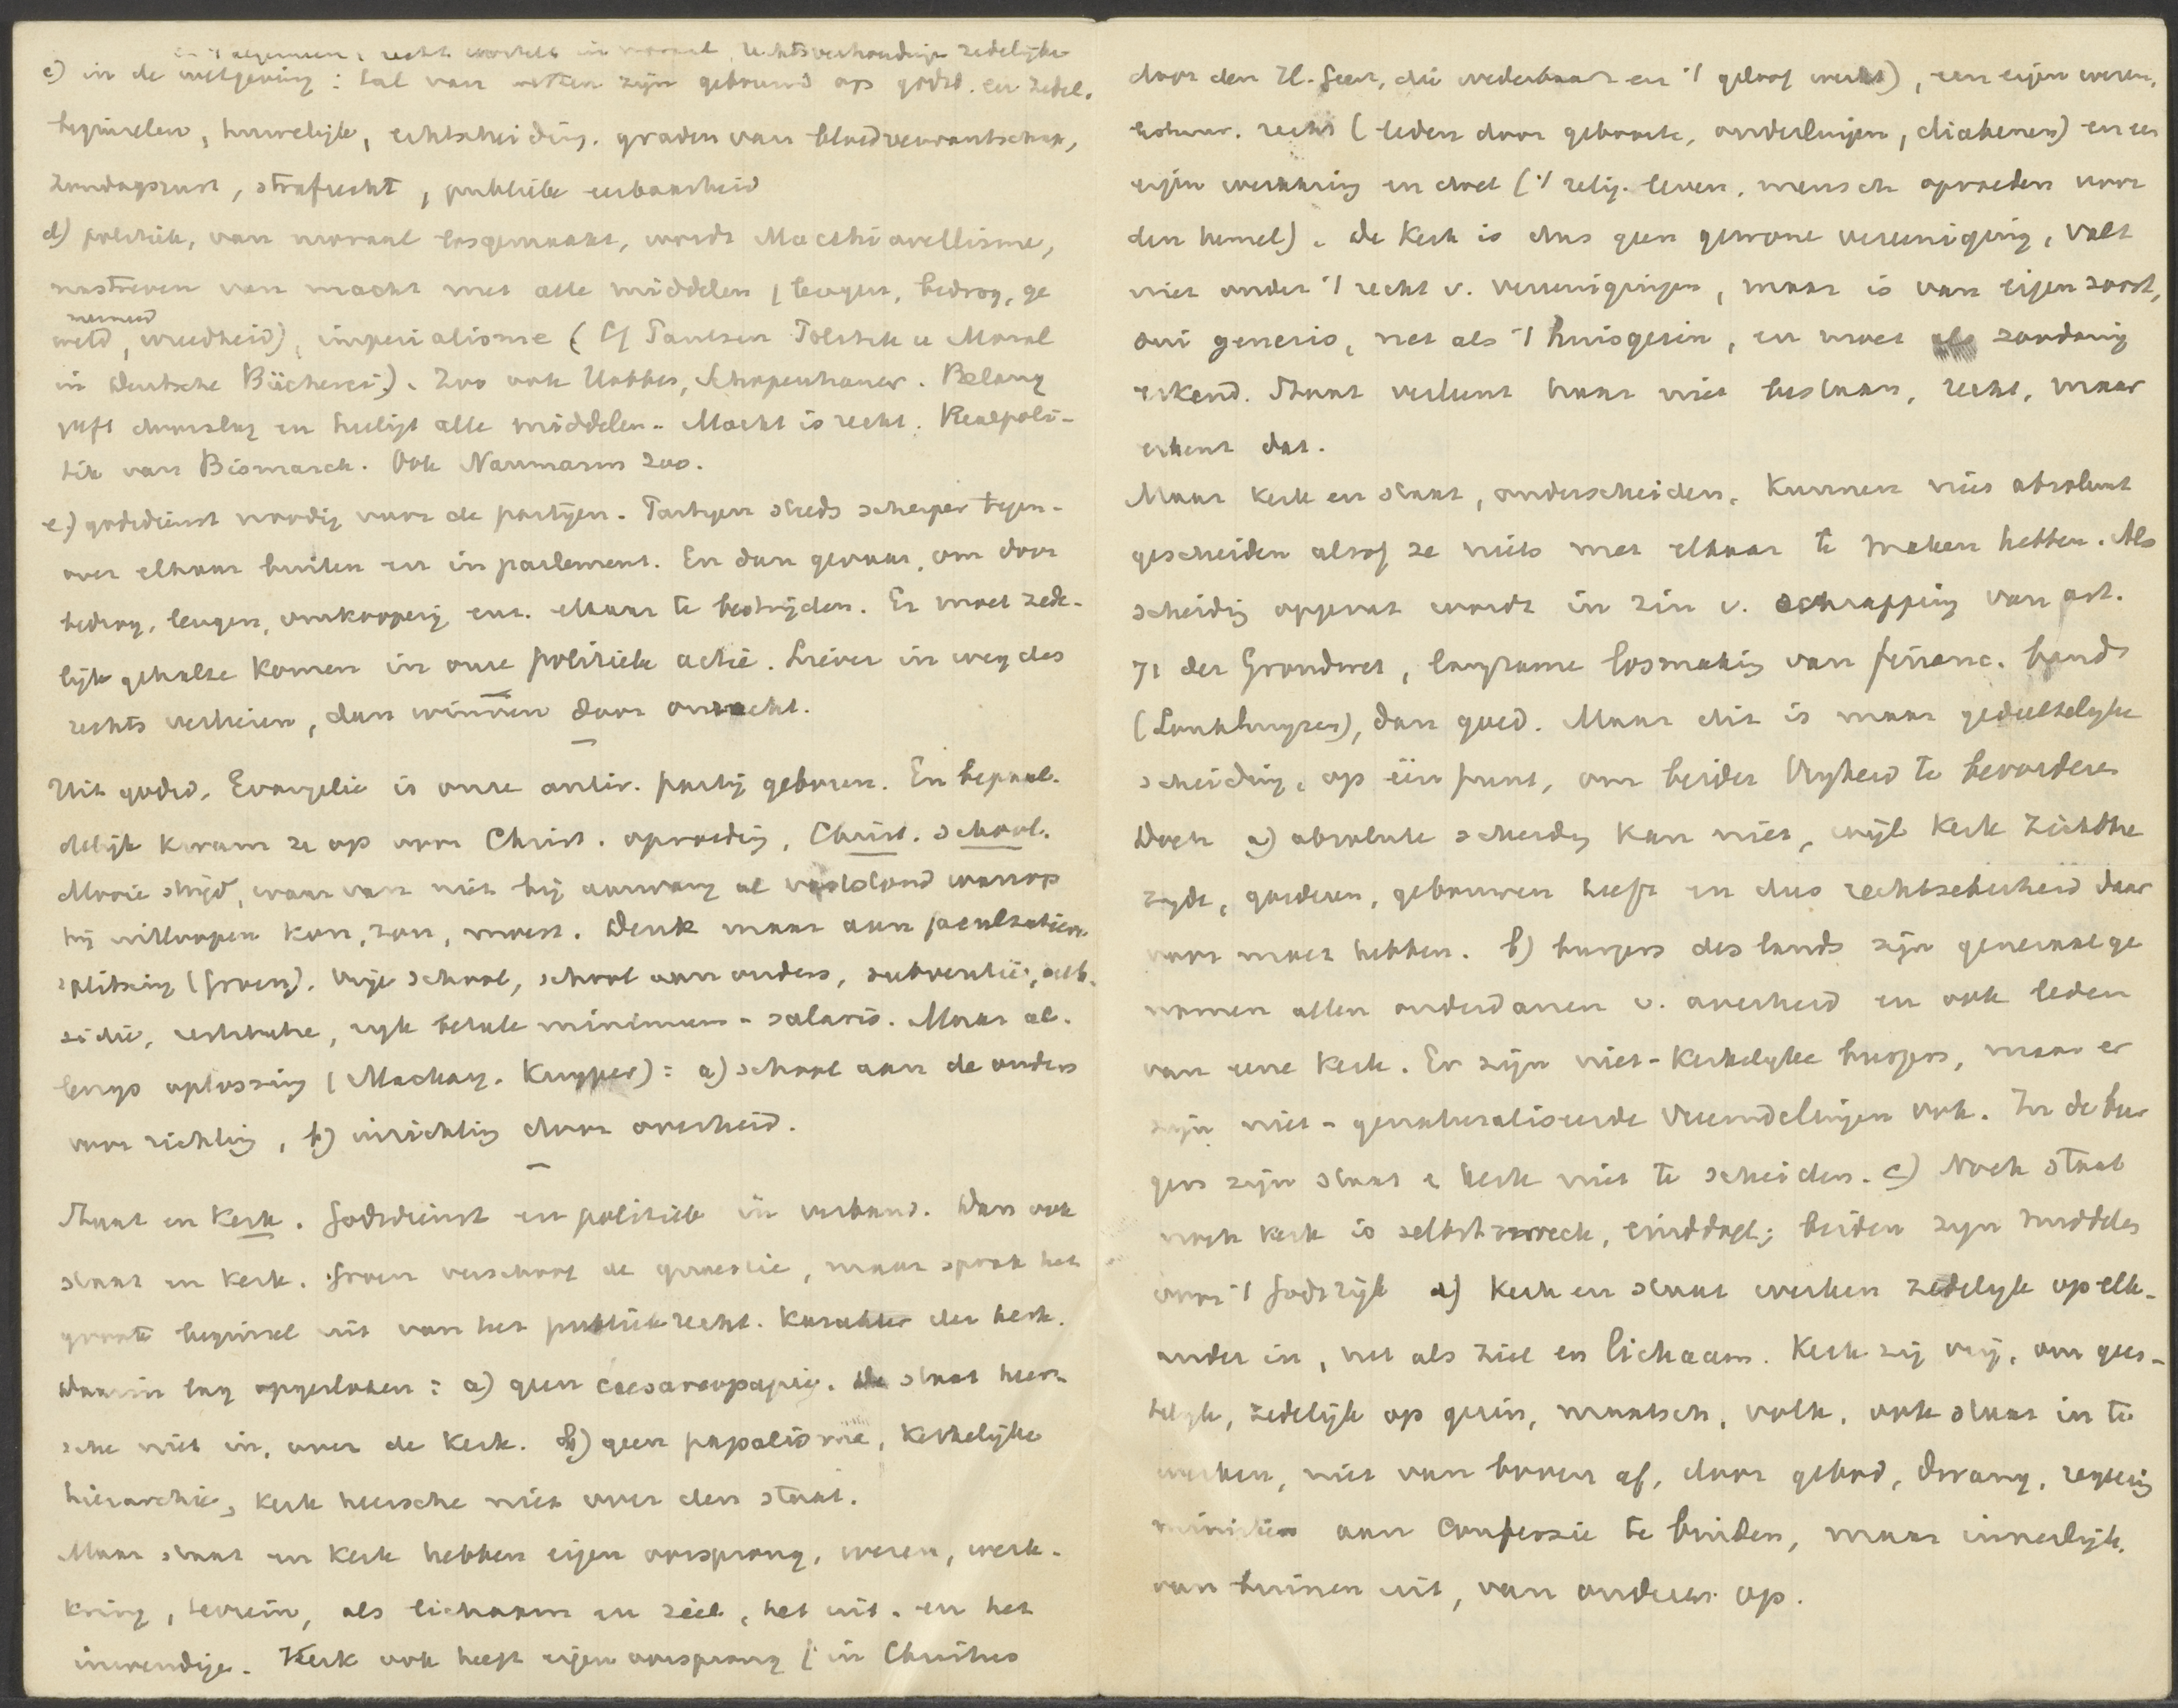 in 't algemeen, recht wortelt in moraal, rechtsverhoudingen zedelijke
c) in de wetgeving: tal van wetten zijn gebouwd op godsd. en zedel.
beginselen, huwelijk, echtscheiding. graden van bloedverwantschap,
Zondagsrust, strafrecht, publieke eerbaarheid
d) politiek, van moraal losgemaakt, wordt Macchiavellisme,
nastreven van macht met alle middelen (leugen, bedrog, ge
meineed
weld, wreedheid), imperialisme (Cf Paulsen Politik u Moral
in Deutsche Bücherei). Zoo ook Hobbes, Schopenhauer. Belang
geft doorslag en heiligt alle middelen. Macht is recht. Realpoli-
tik van Bismarck. Ook Naumann zoo.
e) godsdienst noodig voor de partijen. Partijen steeds scherper tegen-
over elkaar buiten en in parlement. En dan gevaar, om door
bedrog, leugen, omkooperij enz. elkaar te bestrijden. Er moet zede-
lijk gehalte komen in onze politieke actie. Liever in weg des
rechts verliezen, dan winnen door onrecht.
Uit godsd. Evangelie is onze antir. partij geboren. En bepaal-
delijk kwam ze op voor Christ. opvoeding, Christ. school.
Mooie strijd, waarvan niet bij aanvang al vaststond waarop
hij uitloopen kon, zou, moest. Denk maar aan facultatieve
splitsing (Groen). Vrije school, school aan ouders, subventie, sub-
sidie, restitutie, rijk betale minimum-salaris. Maar al-
lengs oplossing (Mackay. Kuyper): a) school aan de ouders
voor richting, b) inrichting door overheid.
Staat en Kerk. Godsdienst en politiek in verband. Dan ook
staat en Kerk. Groen verschoof de quaestie, maar sprak het
groote beginsel uit van het publiekrecht. Karakter der kerk.
Daarin lag opgesloten: a) geen caesareopapie. De staat heer-
sche niet in, over de Kerk. b) geen papalisme, Kerkelijke
hierarchie, Kerk heersche niet over den staat.
Maar staat en Kerk hebben eigen oorsprong, wezen, werk-
kring, terrein, als lichaam en ziel, het uit- en het
inwendige. Kerk ook heeft eigen oorsprong (in Christus
door den H. Geest, die wederbaart en 't geloof werkt), een eigen wezen,
bestuur. recht (leden door geboorte, ouderlingen, diakenen) en een
eigen werkkring en doel ('t relig. leven, mensch opvoeden voor
den hemel). De Kerk is dus geen gewone vereeniging, valt
niet onder 't recht v. vereenigingen, maar is van eigen soort,
sui generis, net als 't huisgezin, en moet als zoodanig
erkend. Staat verleent haar niet bestaan, recht, maar
erkent dat.
Maar kerk en staat, onderscheiden, Kunnen niet absoluut
gescheiden alsof ze niets met elkaar te maken hebben. Als
scheiding opgevat wordt in zin v. schrapping van art.
71 der Grondwet, langzame losmaking van financ. band
(Lohman, Kuyper), dan goed. Maar dit is maar gedeeltelijke
scheiding, op één punt, om beider vrijheid te bevorderen
Doch a) absolute scheiding kan niet, wijl Kerk zichtbre
zijde, goederen, gebouwen heeft en dus rechtszekerheid daar
voor moet hebben. b) burgers des lands zijn generaal ge
nomen allen onderdanen v. overheid en ook leden
van eene Kerk. Er zijn niet-Kerkelijke burgers, maar er
zijn niet-genaturaliseerde vreemdelingen ook. In de bur
gers zijn staat & kerk niet te scheiden. c) Noch staat
noch kerk is selbstzweck, einddoel; beiden zijn middelen
voor 't Godsrijk d) Kerk en staat werken zedelijk op elk-
ander in, net als ziel en lichaam. Kerk zij vrij, om gees-
telijk, zedelijk op gezin, maatsch, volk, ook staat in te
werken, niet van boven af, door gebod, dwang, regeering
ministers aan Confessie te binden, maar innerlijk,
van binnen uit, van onderen op.